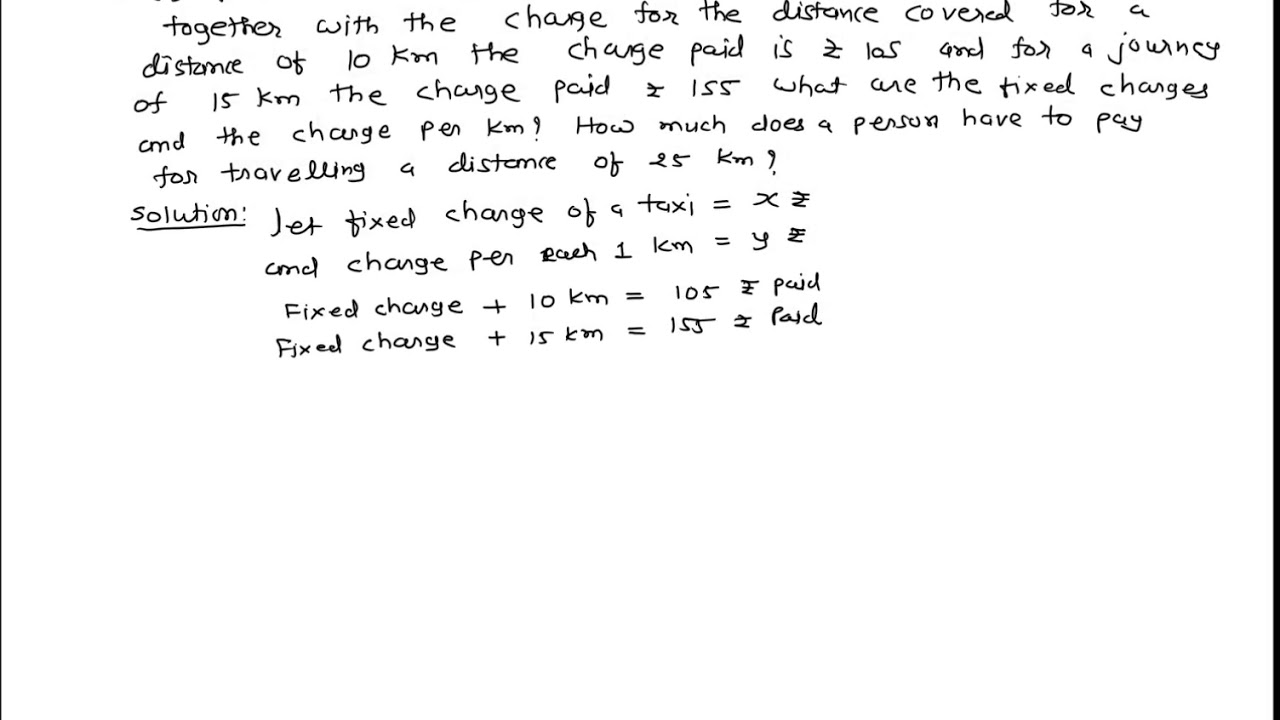 together with the charge for the distance covered for a
distance of 10 km the charge paid is ₹ 105 and for a journey
of 15 km the charge paid ₹ 155 what are the fixed charges
and the charge per km? How much does a person have to pay
for travelling a distance of 25 km?
Solution: Let fixed charge of a taxi = x ₹
and charge per each 1 km = y ₹
Fixed charge + 10 km = 105 ₹ paid
Fixed charge + 15 km = 155 ₹ Paid